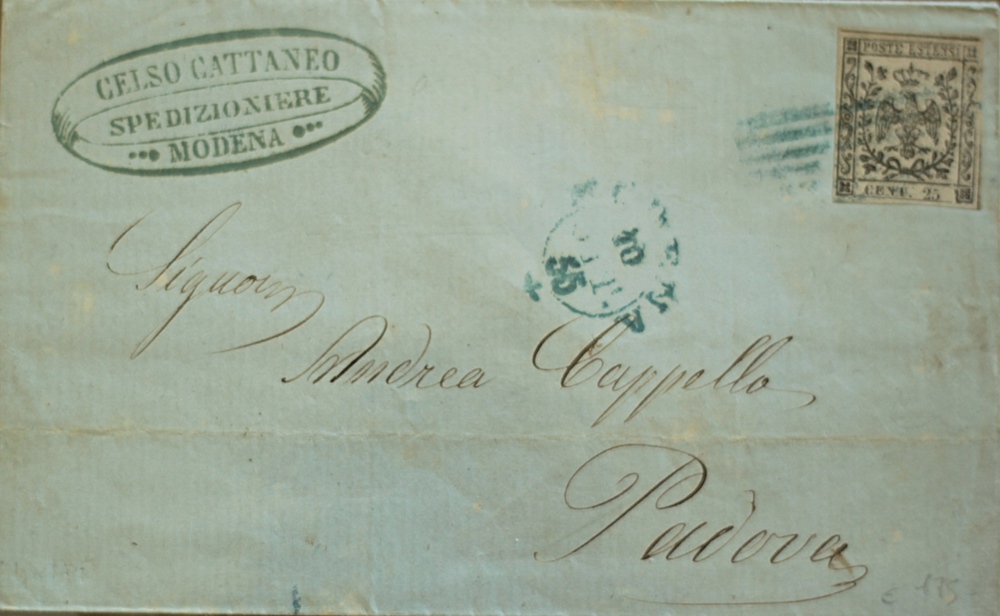 CELSO CATTANEO
SPEDIZIONIERE
MODENA
POSTE ESTENSI
CENT. 25
10
55
Signor
Andrea Cappello
Padova